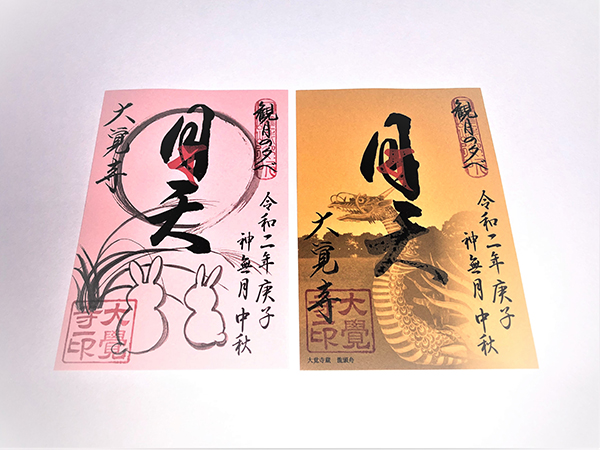 観月の夕べ
令和二年庚子
神無月中秋
月天
大覚寺
大覺
寺印
観月の夕べ
令和二年庚子
神無月中秋
月天
大覚寺
大覺
寺印
大覚寺蔵 龍頭舟